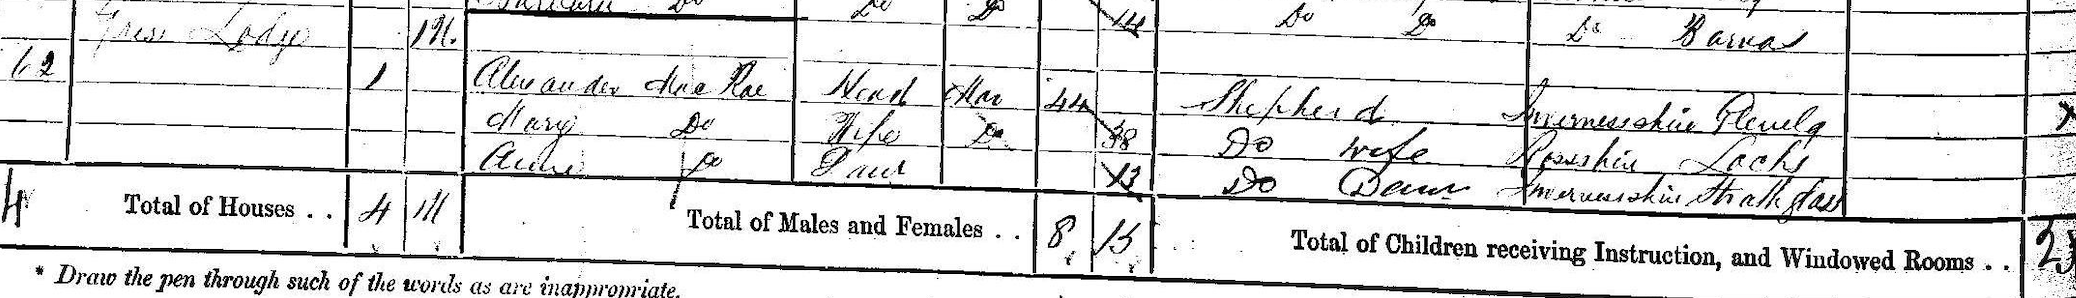 Do Do 14 Do Do Do Barvas
Lodge 1 U.
62 1 Alexander Mac Rae Head Mar 44 Shepherd Invernessshire Glenelg
Mary Do Wife Do 38 Do wife Rossshire Lochs
Anne Do Daur 13 Do Daur Invernessshire Strathglass
4 Total of Houses . . 4 Total of Males and Females . . 8 15 Total of Children receiving Instruction, and Windowed Rooms . .
* Draw the pen through such of the words as are inappropriate.